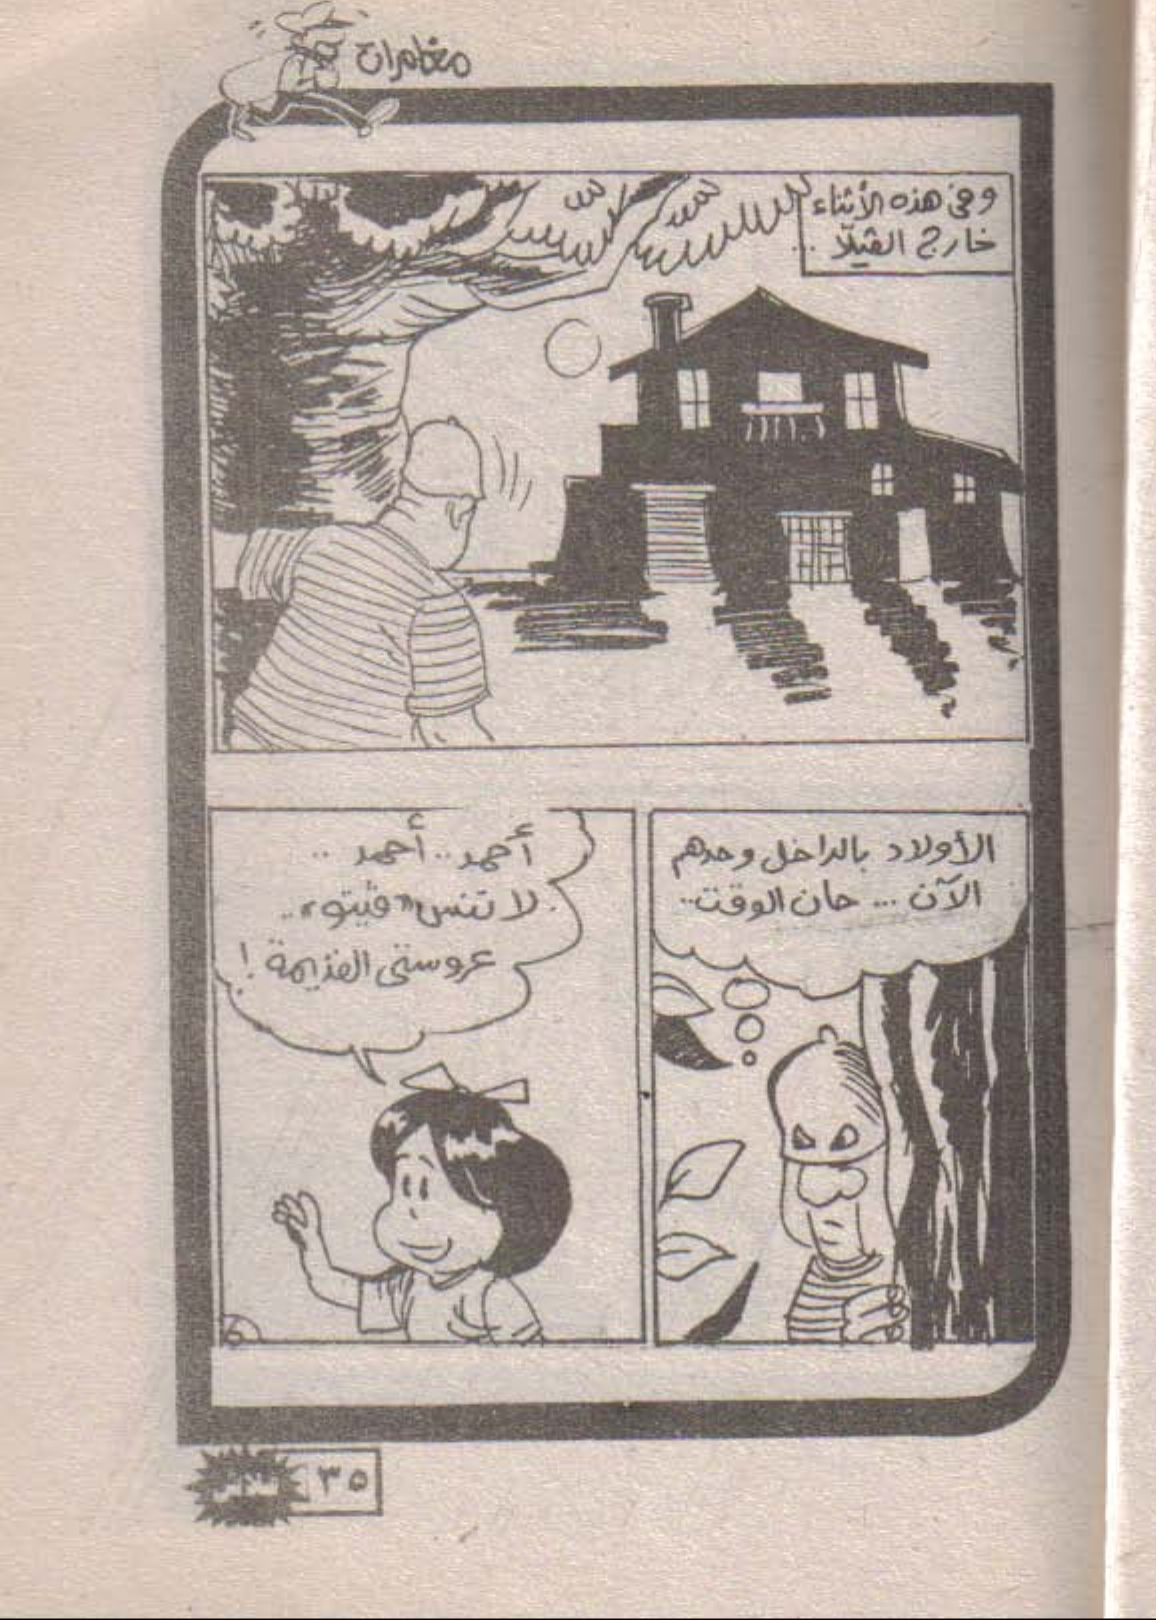 مغامرات
وفى هذه الأثناء
خارج الڤيلّا ..
الأولاد بالداخل وحدهم
الآن ... حان الوقت..
أحمد .. أحمد ..
لا تنس «ڤيتو»..
عروستى القديمة !
٣٥